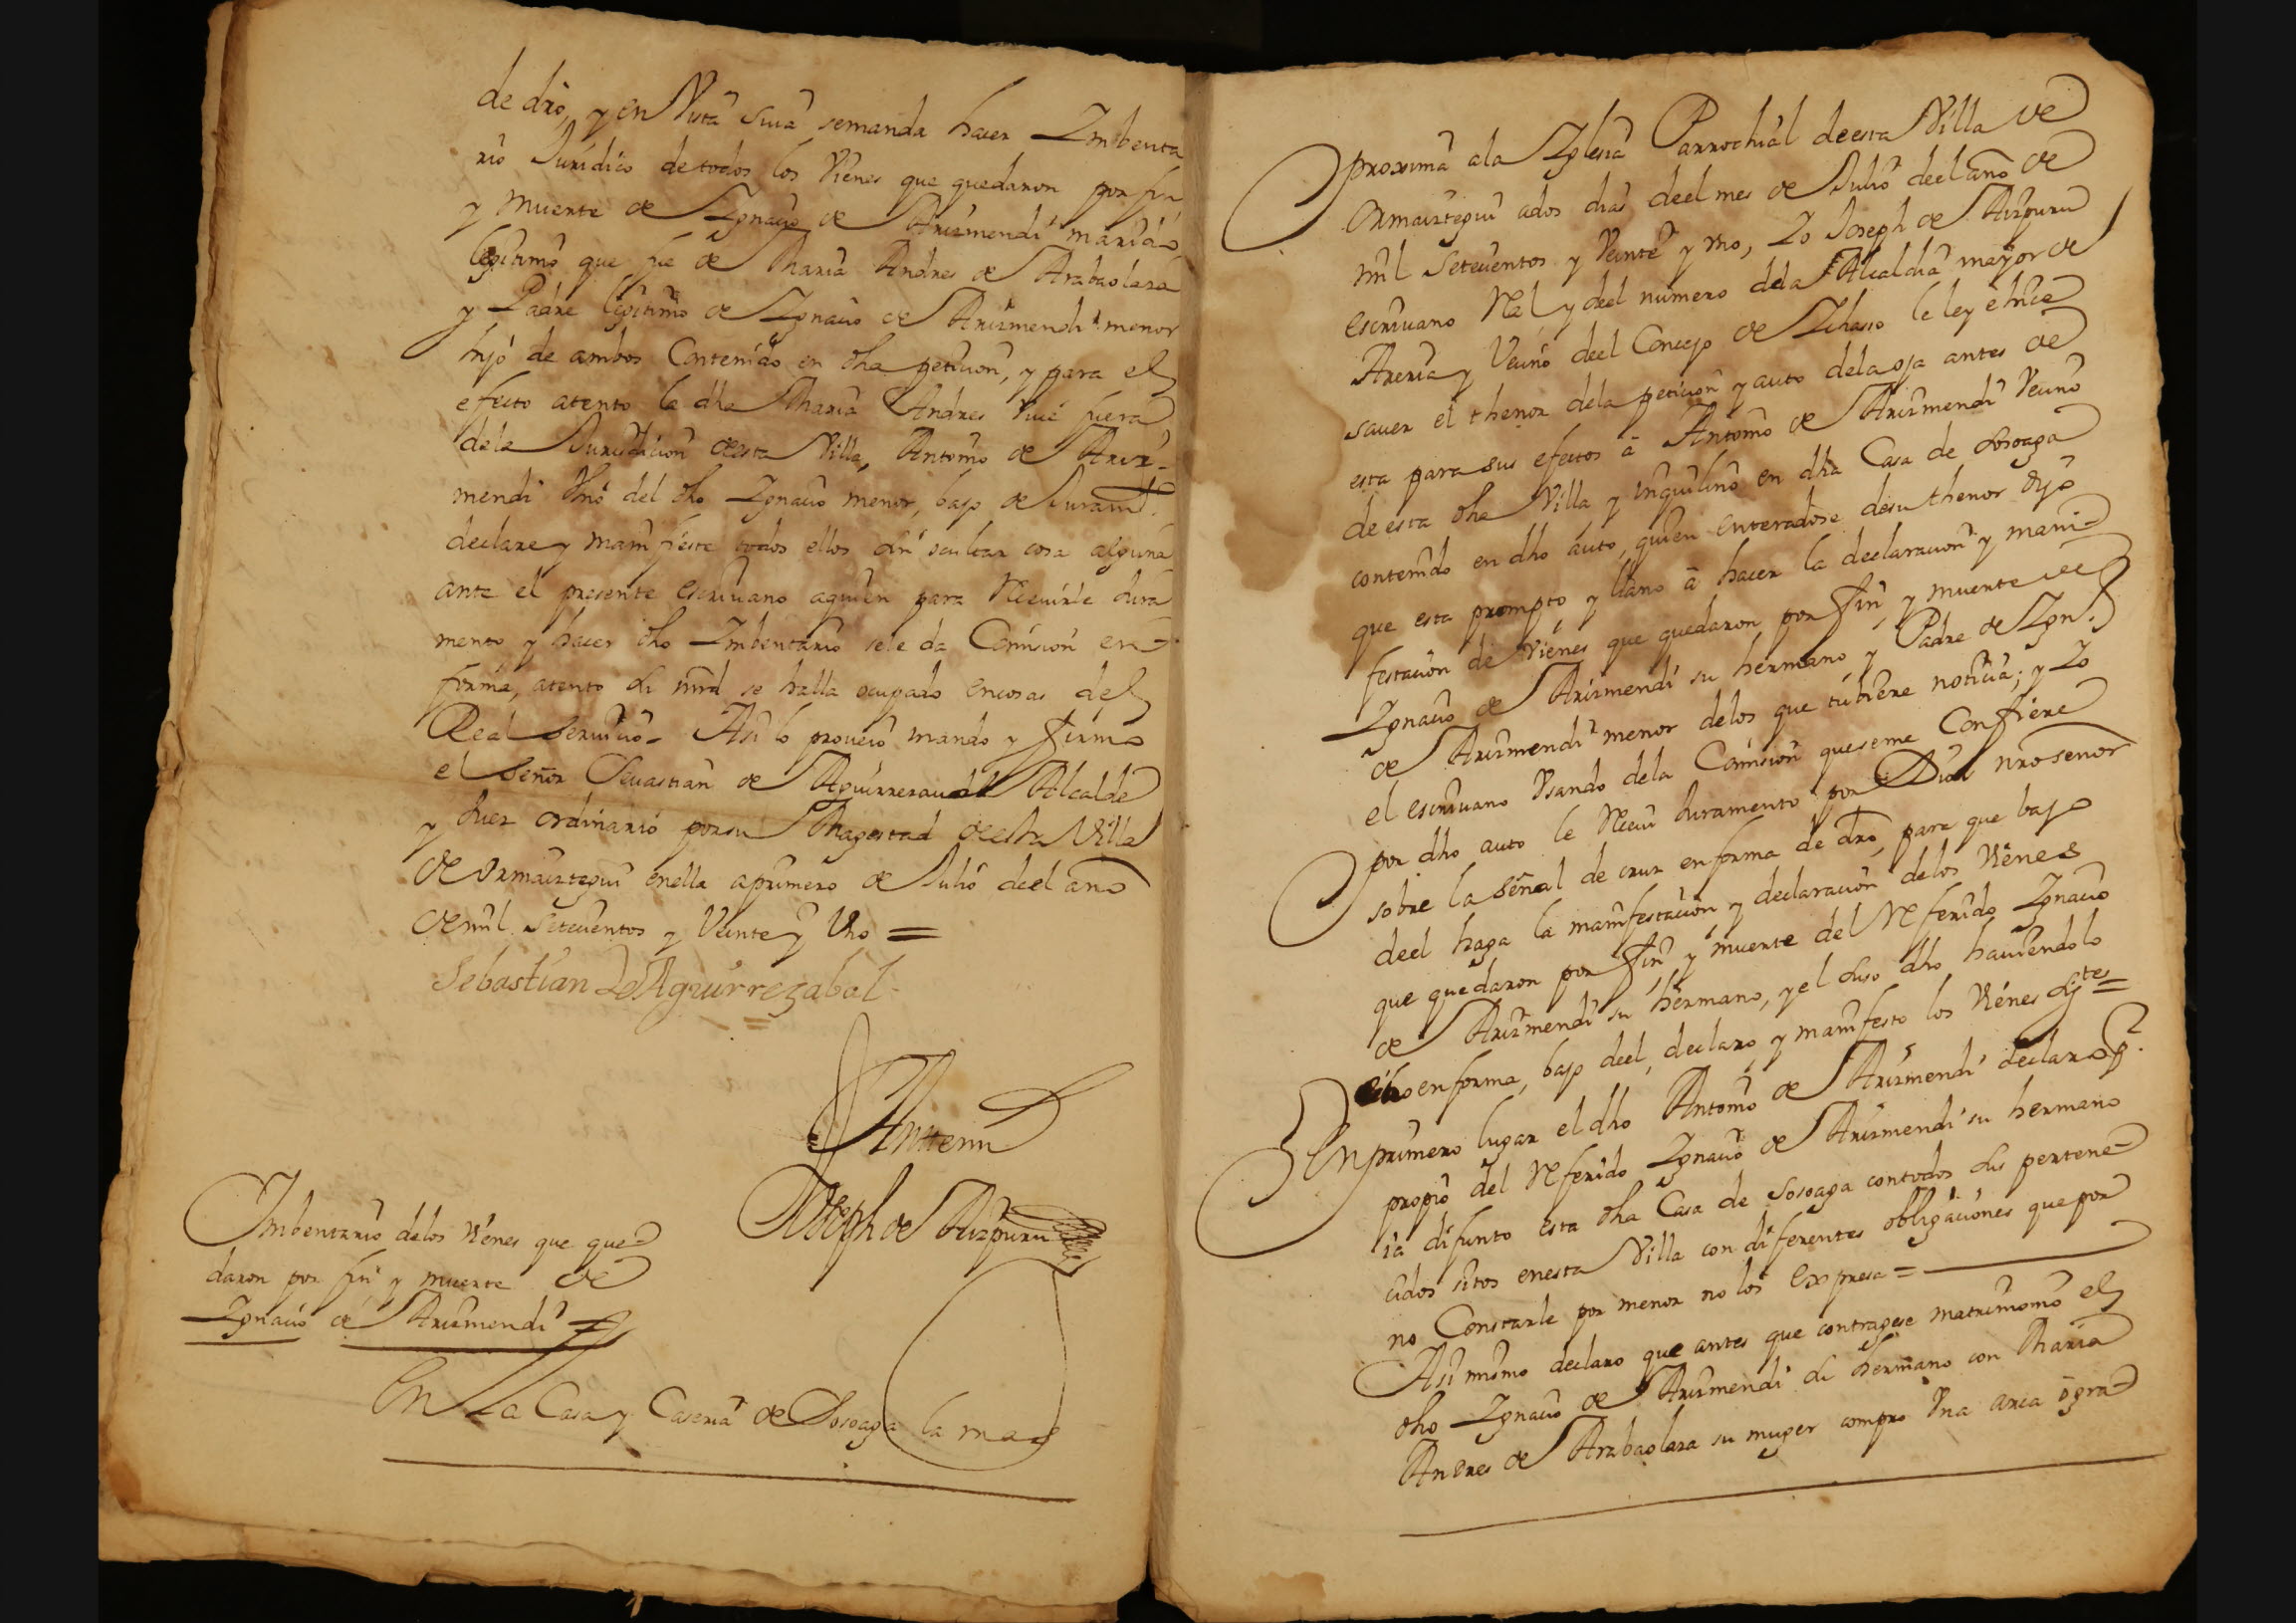 de dro, y en Vista suia semanda hacer Imbenta
rio Juridico de todos los Vienes que quedaron por fin
y muerte de Ignacio de Arizmendi marido
legitimo que fue de Maria Andres de Arabaolaza
y Padre legitimo de Ignacio de Arizmendi menor
hijo de ambos Contenido en dha peticion, y para el
efecto atento la dha Maria Andres Vive fuera
dela Jurisdicion desta Villa, Antonio de Ariz-
mendi thio del dho Ignacio menor, bajo de Juramto.
declare y manifieste todos ellos sin ocultar cosa alguna
ante el presente escriuano aquien para Receuirle Jura
mento y hacer dho Imbentario sele da Comision en
forma, atento su mrd se halla ocupado encosas del
Real seruicio- Asi lo proueio mando y firmo
el Señor Seuastian de Aguirrezaual Alcalde
y Juez ordinario porsu Magestad deesta Villa
de Ormaiztegui enella aprimero de Julio deel año
de mil setecientos y Veinte y Uno =
Sebastian de Aguirrezabal
Antemi
Joseph de Aizpuru
Imbentario delos Vienes que que
daron por fin y muerte de
Ignacio de Arizmendi
En La Casa y Caseria de Sosoaga la mas
proxima ala Iglesia Parrochial deesta Villa de
Ormaiztegui ados dias deel mes de Julio deel año de
mil setecientos y Veinte y Uno, Yo Joseph de Aizpuru
escriuano Real y deel numero dela Alcaldia mayor de
Areria y Vecino deel Concejo de Ichaso le ley e hice
sauer el thenor dela peticion y auto dela oja antes de
esta para sus efectos a Antonio de Arizmendi Vecino
de esta dha Villa y inquilino en dha Casa de Sosoaga
contenido en dho auto, quien enteradose desu thenor dijo
que esta prompto y llano a hacer la declaracion y mani-
festacion de Vienes que quedaron por fin y muerte de
Ignacio de Arizmendi su hermano y Padre de Ign.o
de Arizmendi menor delos que tubiere noticia; y Yo
el escriuano Usando dela Comision queseme Confiere
por dho auto le Receui Juramento por Dios nro señor
sobre la señal de cruz enforma de dro, para que bajo
deel haga la manifestacion y declaracion delos Vienes
que quedaron por fin y muerte del Referido Ignacio
de Arizmendi su hermano, y el Suso dho hauiendolo
echo enforma, bajo deel, declaro y manifesto los Vienes sigtes =
En primero lugar el dho Antonio de Arizmendi declaro pr.
propio del Referido Ignacio de Arizmendi su hermano
ia difunto esta dha Casa de Sosoaga contodos sus pertene
cidos sitos enesta Villa con diferentes obligaciones que por
no Constarle por menor no los expresa =
Asi mismo declaro que antes que contragese matrimonio el
dho Ignacio de Arizmendi su hermano con Maria
Andres de Arabaolaza su muger compro Una arca ogra